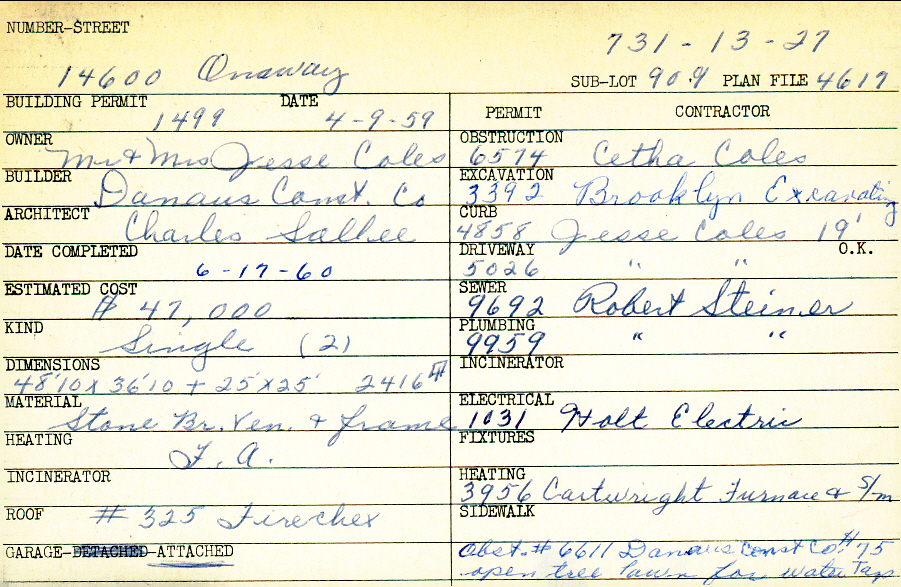 NUMBER-STREET
731-13-27
14600 Onaway
SUB-LOT 909 PLAN FILE 4617
BUILDING PERMIT DATE
1499 4-9-59
OWNER
Mr & Mrs Jesse Coles
BUILDER
Danaus Const. Co
ARCHITECT
Charles Sallee
DATE COMPLETED
6-17-60
ESTIMATED COST
# 47,000
KIND
Single (2)
DIMENSIONS
48'10 x 36'10 + 25' x 25' 2416
MATERIAL
Stone Br. Ven. & frame
HEATING
F.A.
INCINERATOR
ROOF # 325 Firechex
GARAGE-DETACHED-ATTACHED
PERMIT CONTRACTOR
OBSTRUCTION
6574 Cetha Coles
EXCAVATION
3392 Brooklyn Excavating
CURB
4858 Jesse Coles 19'
DRIVEWAY O.K.
5026 " "
SEWER
9692 Robert Steiner
PLUMBING
9959 " "
INCINERATOR
ELECTRICAL
1031 Holt Electric
FIXTURES
HEATING
3956 Cartwright Furnace & S/m
SIDEWALK
Obst.# 6611 Danaus Const Co. # 75
open tree lawn for water Tap